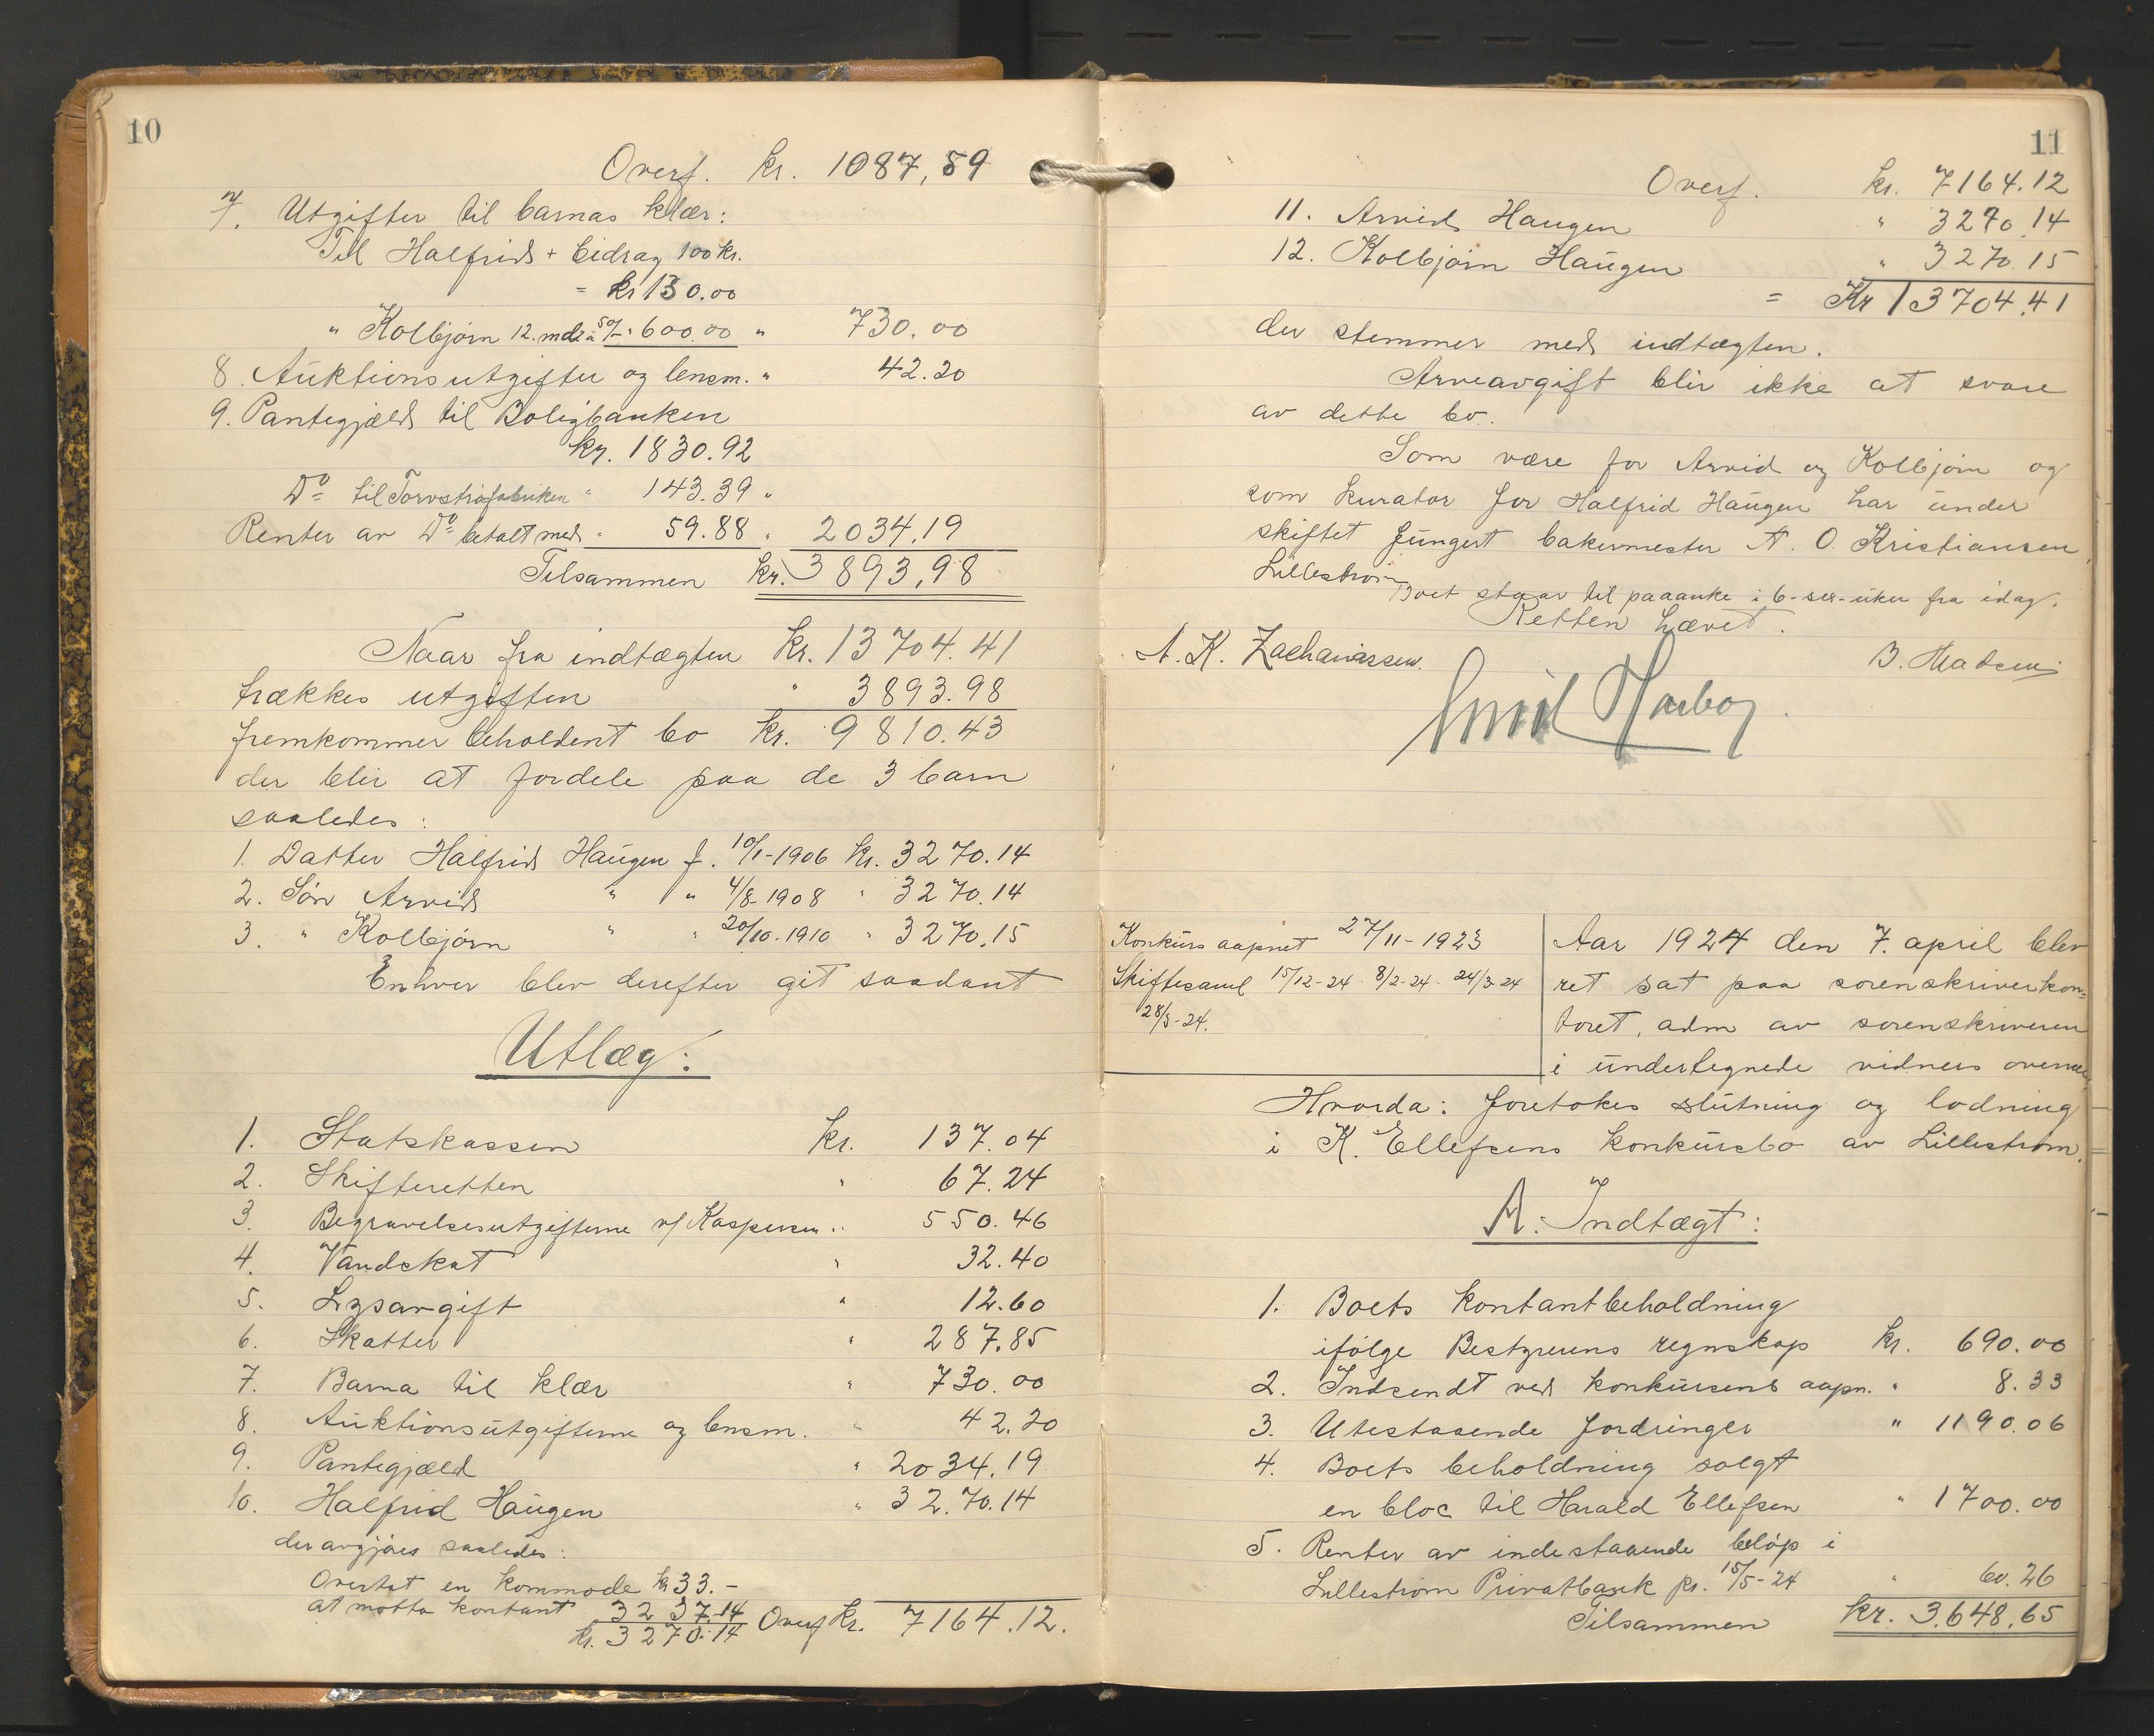 10
Overf. kr. 1087,59
7. Utgifter til barnas klær:
Til Halfrids + bidrag 100 kr.
= kr 130.00
" Kolbjørn 12. mdr à 50/- " 600.00 " 730.00
8. Auktionsutgifter og lensm. " 42.20
9. Pantegjæld til Boligbanken
kr. 1830.92
Do til Torvstrøfabriken " 143.39 "
Renter av Do betalt med " 59.88 " 2034,19
Tilsammen kr. 3893,98
Naar fra indtægten kr. 13704.41
trækkes utgiften " 3893.98
fremkommer beholdent bo kr. 9810.43
der blir at fordele paa de 3 barn
saaledes:
1. Datter Halfrid Haugen f. 10/1-1906 kr. 3270.14
2. Søn Arvid " " 4/8-1908 " 3270.14
3. " Kolbjørn " " 20/10-1910 " 3270.15
Enhver blev derefter git saadant
Utlæg:
1. Statskassen kr. 137.04
2. Skifteretten " 67.24
3. Begravelsesutgifterne v/ Kaspersen " 550.46
4. Vandskat " 32.40
5. Lysavgift " 12.60
6. Skatter " 287.85
7. Barna til klær " 730.00
8. Auktionsutgifterne og lensm. " 42.20
9. Pantegjæld " 2034.19
10. Halfrid Haugen " 32.70.14
der avgjøres saaledes:
Overtat en kommode kr 33.-
at motta kontant 3237.14
kr. 3270.14 Overf kr. 7164.12.
11
Overf. kr. 7164.12
11. Arvid Haugen " 3270.14
12. Kolbjørn Haugen " 3270.15
= Kr 13704.41
der stemmer med indtægten.
Arveavgift blir ikke at svare
av dette bo.
Som være for Arvid og Kolbjørn og
som kurator for Halfrid Haugen har under
skiftet fungert bakermester A. O. Kristiansen,
Lillestrøm
Boet staar til paaanke i 6-sex-uker fra idag.
Retten hævet.
A. K. Zachariassen. B. Madsen
Emil
Konkurs aapnet 27/11-1923
Skiftesaml 15/12-24 8/2-24 24/3-24
28/3-24.
Aar 1924 den 7. april blev
ret sat paa sorenskriverkon=
toret, adm av sorenskriveren
i undertegnede vidners overvær
Hvorda: foretokes slutning og lodning
i K. Ellefsens konkursbo av Lillestrøm.
A. Indtægt:
1. Boets kontantbeholdning
ifølge Bestyrerens regnskap kr. 690.00
2. Indsendt ved konkursens aapn. " 8.33
3. Utestaaende fordringer " 1190.06
4. Boets beholdning solgt
en bloc til Harald Ellefsen " 1700.00
5. Renter av indestaaende beløp i
Lillestrøm Privatbank pr. 15/5-24 " 60.26
Tilsammen kr. 3.648,65